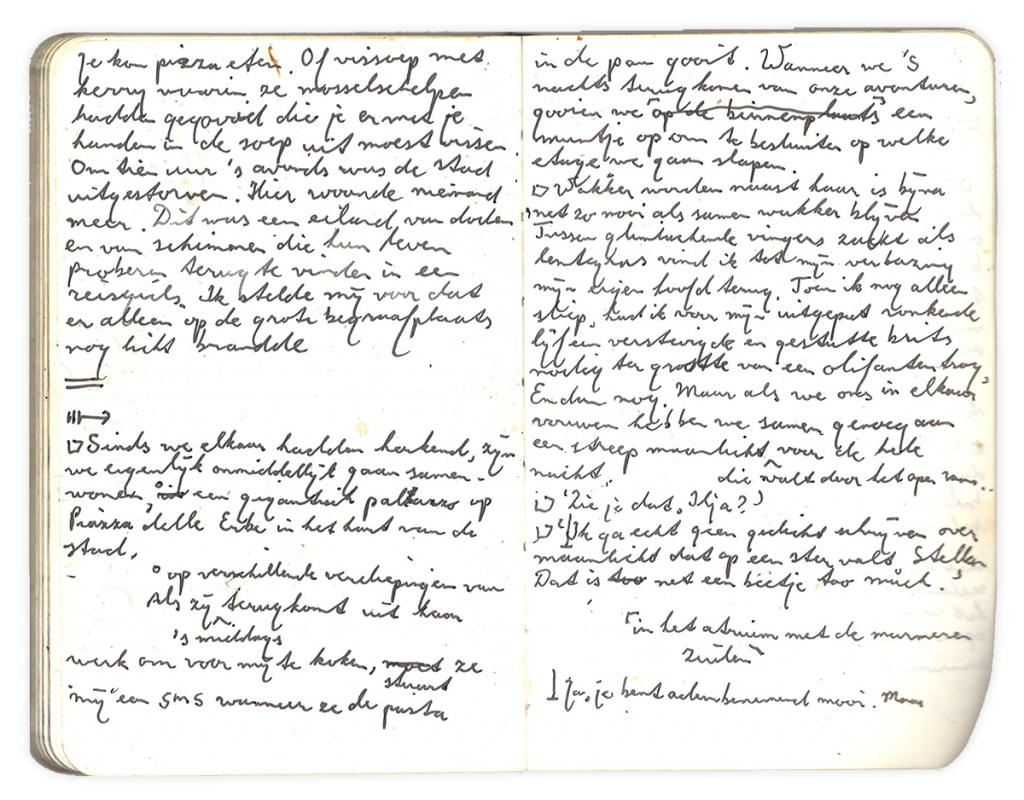 je kon pizza eten. Of vissoep met
kerry waarin ze mosselschelpen
hadden gegooid die je er met je
handen in de soep uit moest vissen.
Om tien uur 's avonds was de stad
uitgestorven. Hier woonde niemand
meer. Dit was een eiland van doden
en van schimmen die hun leven
proberen terug te vinden in een
reisgids. Ik stelde mij voor dat
er alleen op de grote begraafplaats
nog licht brandde
Sinds we elkaar hadden herkend, zijn
we eigenlijk onmiddellijk gaan samen-
wonen in een gigantisch palazzo op
Piazza delle Erbe in het hart van de
stad.
° op verschillende verdiepingen van
Als zij terugkomt uit haar
's middags
werk om voor mij te koken, moet ze
stuurt
mij een SMS wanneer ze de pasta
in de pan gooit. Wanneer we 's
nachts terugkomen van onze avonturen,
gooien we op de binnenplaats een
muntje op om te besluiten op welke
etage we gaan slapen.
Wakker worden naast haar is bijna
net zo mooi als samen wakker blijven.
Tussen glimlachende vingers zacht als
lentegras vind ik tot mijn verbazing
mijn eigen hoofd terug. Toen ik nog alleen
sliep, had ik voor mijn uitgeput vonkende
lijf een verstevigde en gestutte brits
nodig ter grootte van een olifantentrog,
En dan nog. Maar als we ons in elkaar
vouwen hebben we samen genoeg aan
een streep maanlicht voor de hele
nacht. die valt door het open raam..
'Zie je dat, Ilja?'
'Ik ga echt geen gedicht schrijven over
maanlicht dat op een ster valt, Stella.
Dat is too net een beetje too much.'
in het atrium met de marmeren
zuilen
Ja, je bent adembenemend mooi. Maar